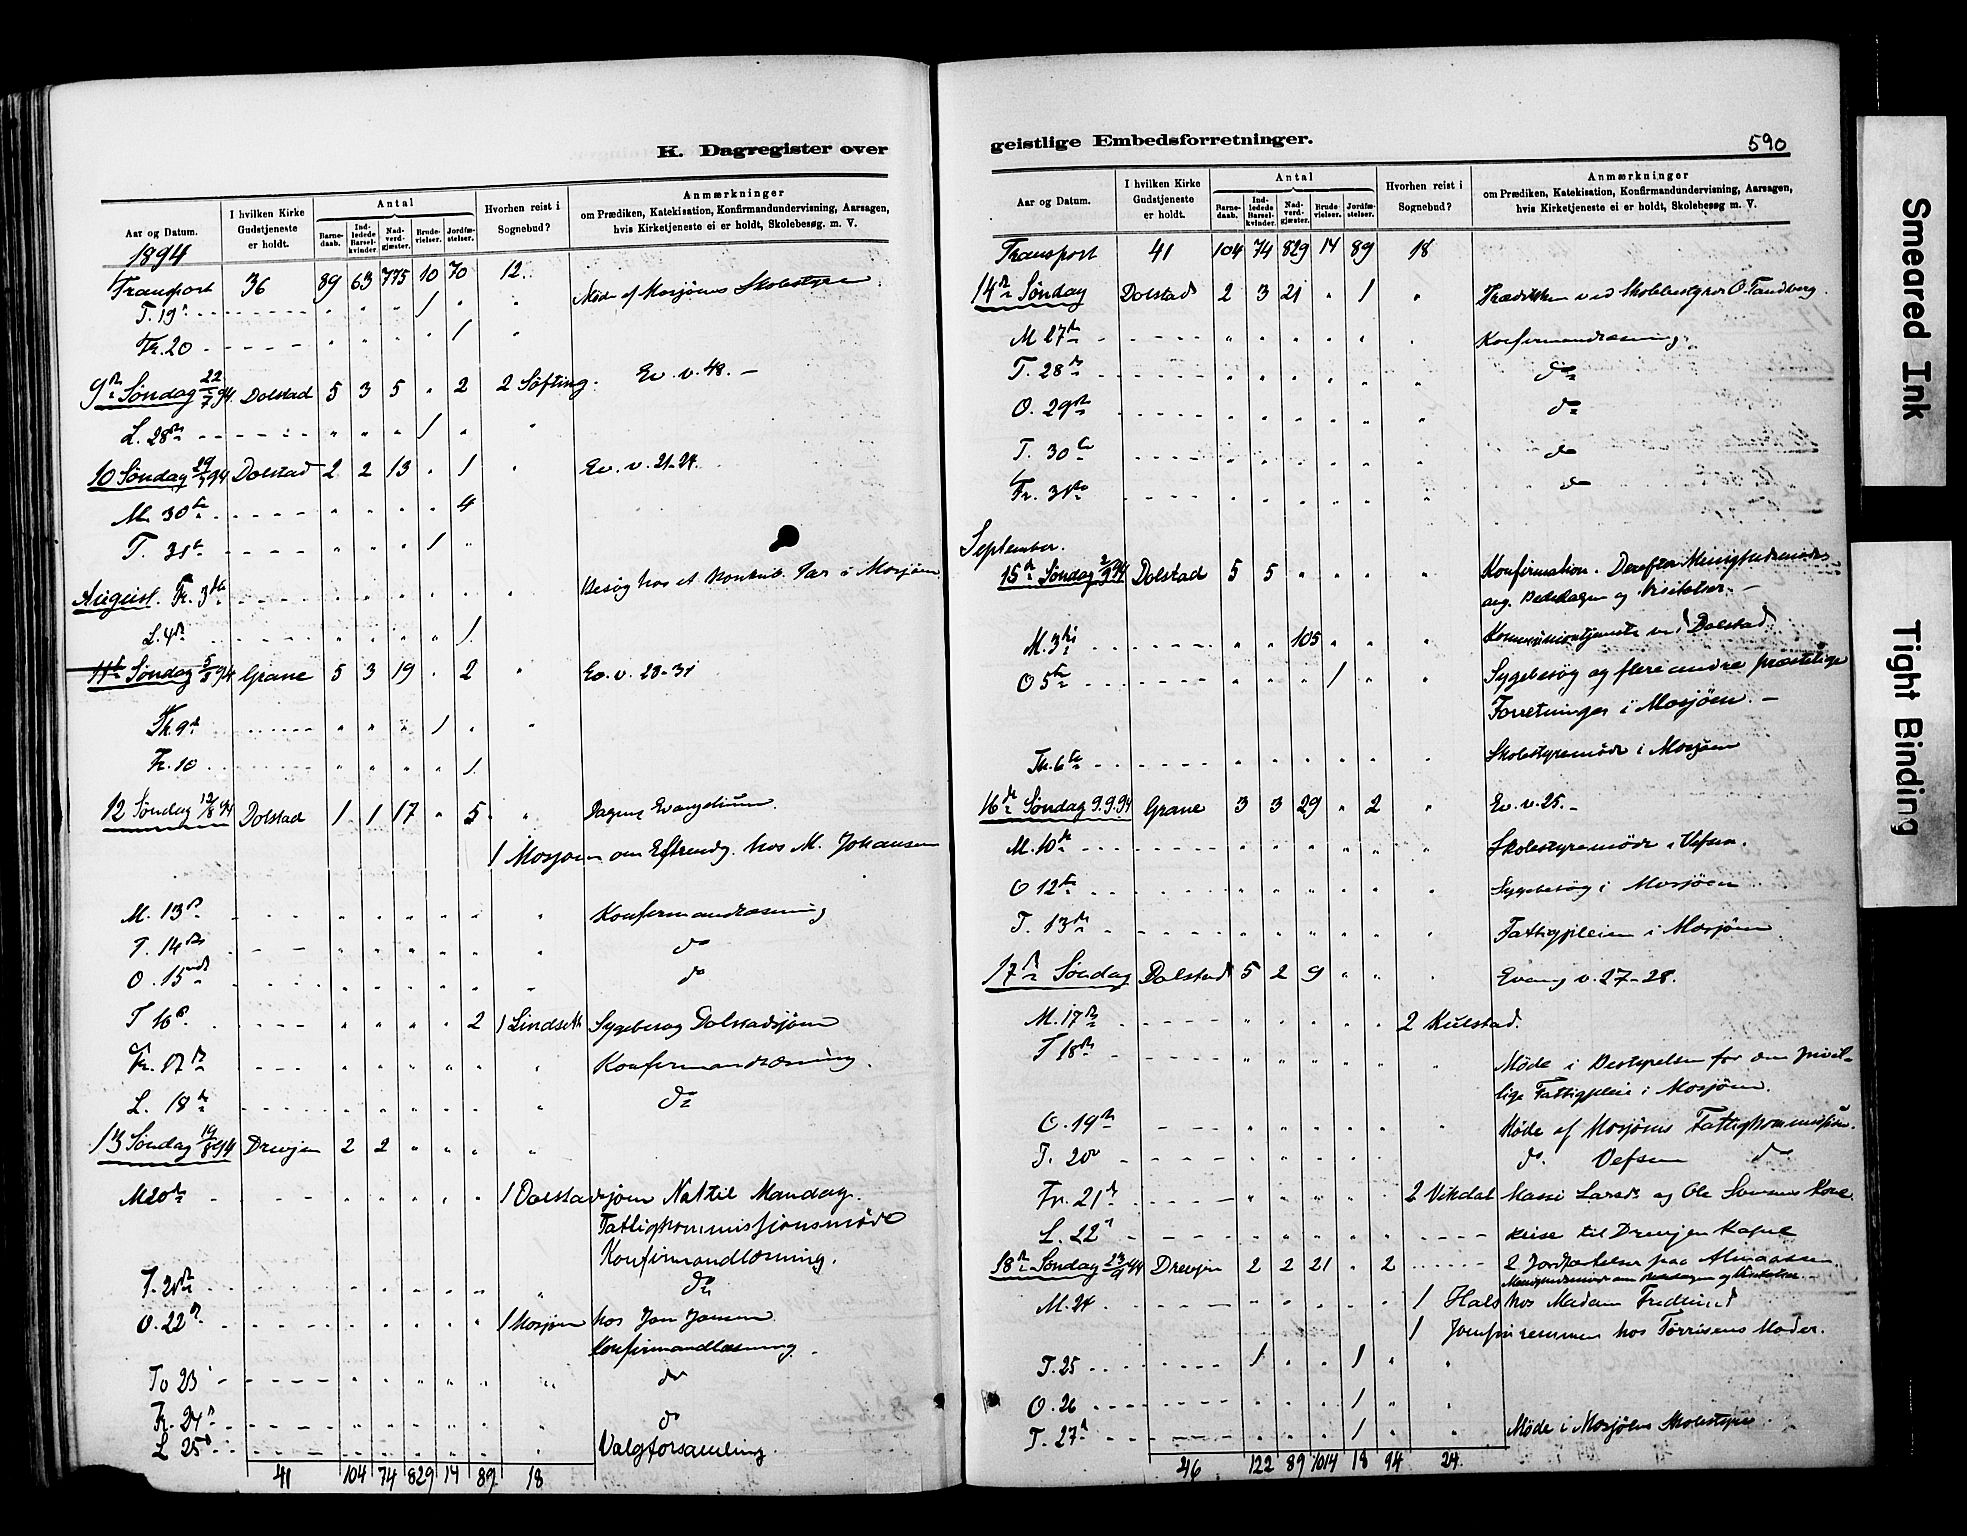 K. Dagregister over
Aar og Datum.
I hvilken Kirke Gudstjeneste er holdt.
Antal
Barne-daab.
Ind-ledede Barsel-kvinder.
Nad-verd-gjester.
Brude-vielser.
Jordfæ-stelser.
Hvorhen reist i Sognebud?
Anmærkninger
om Prædiken, Katekisation, Konfirmandundervisning, Aarsagen,
hvis Kirketjeneste ei er holdt, Skolebesøg. m. V.
1894
Transport 36 89 63 775 10 70 12.
T. 19 1 Møde af Mosjøens Skolestyre
Fr. 20 1
9de Søndag 22/7 94 Dolstad 5 3 5 2 2 Søfting. Ev. v. 48. –
L. 28de 1
10 Søndag 29/7 94 Dolstad 2 2 13 1 Ev. v. 21-24
M. 30te 4
T. 31te 1
August. Fr. 3die Besøg hos et i Mosjøen
L. 4de 1
11te Søndag 5/8 94 Grane 5 3 19 2 Ev. v. 23-31
Th. 9de 1
Fr. 10 1
12 Søndag 12/8 94 Dolstad 1 1 17 5 Dagens Evangelium.
1 Mosjøen om Eftermdg. hos M. Johansen
M. 13de Konfirmandlæsning
T. 14de do
O. 15 do
T 16de 2 1 Lindseth Sygebesøg Dolstadsjøen
Fr. 17de Konfirmandlæsning.
L. 18de do
13 Søndag 19/8 94 Drevjen 2 2
M 20de 1 Dolstadsjøen Nat til Mandag.
Fattigkommissionsmøde
Konfirmandlæsning.
T. 21de do
O. 22de 1 Mosjøen hos Jon Jansen
Konfirmandlæsning.
To 23 do
Fr. 24de do
L 25de Valgforsamling.
41 104 74 829 14 89 18
geistlige Embedsforretninger.
590
Aar og Datum.
I hvilken Kirke Gudstjeneste er holdt.
Antal
Barne-daab.
Ind-ledede Barsel-kvinder.
Nad-verd-gjester.
Brude-vielser.
Jordfæ-stelser.
Hvorhen reist i Sognebud?
Anmærkninger
om Prædiken, Katekisation, Konfirmandundervisning, Aarsagen,
hvis Kirketjeneste ei er holdt, Skolebesøg m. V.
Transport 41 104 74 829 14 89 18
14de Søndag Dolstad 2 3 21 1 Prædiken ved Skolebestyrer O. Tandberg.
M 27de Konfirmandlæsning.
T. 28de do
O. 29de do
T. 30te do
Fr. 31te do
September.
15de Søndag 2/9 94 Dolstad 5 5 Konfirmation. Derefter Menighedsmøde
ang. Bededagen og Visitatser. –
M. 3die 105 Kommuniontjeneste ved Dolstad
O 5te 1 Sygebesøg og flere andre præstelige
Forretninger i Mosjøen. –
Th. 6te Skolestyremøde i Mosjøen
16de Søndag 9.9.94 Grane 3 3 29 2 Ev. v. 25. –
M. 10de Skolestyremøde i Vefsen.
O 12te Sygebesøg i Mosjøen
T. 13de Fattigpleien i Mosjøen
17de Søndag Dolstad 5 2 9 Evang v. 27-28.
M. 17de 2 Kulstad.
T 18de Møde i Bestyrelsen for den frivil-
lige Fattigpleie i Mosjøen.
O. 19de Møde af Mosjøens Fattigkommission.
T. 20 do. Vefsen do
Fr. 21de 2 Vikdal og Ole Kone.
L. 22de Reise til Drevjen Kapel
18de Søndag 23/9 94 Drevjen 2 2 21 2 2 Jordfæstelser paa
Menighedsmøde om Bededagen og Visitatser
M. 24 1 Hals hos Madam Fredlund
1 hos Tørrisens Moder.
T. 25 1 1
O. 26 1
T. 27de 1 Møde i Mosjøens Skolestyre.
46 122 89 1014 18 94 24
Smeared Ink
Tight Binding